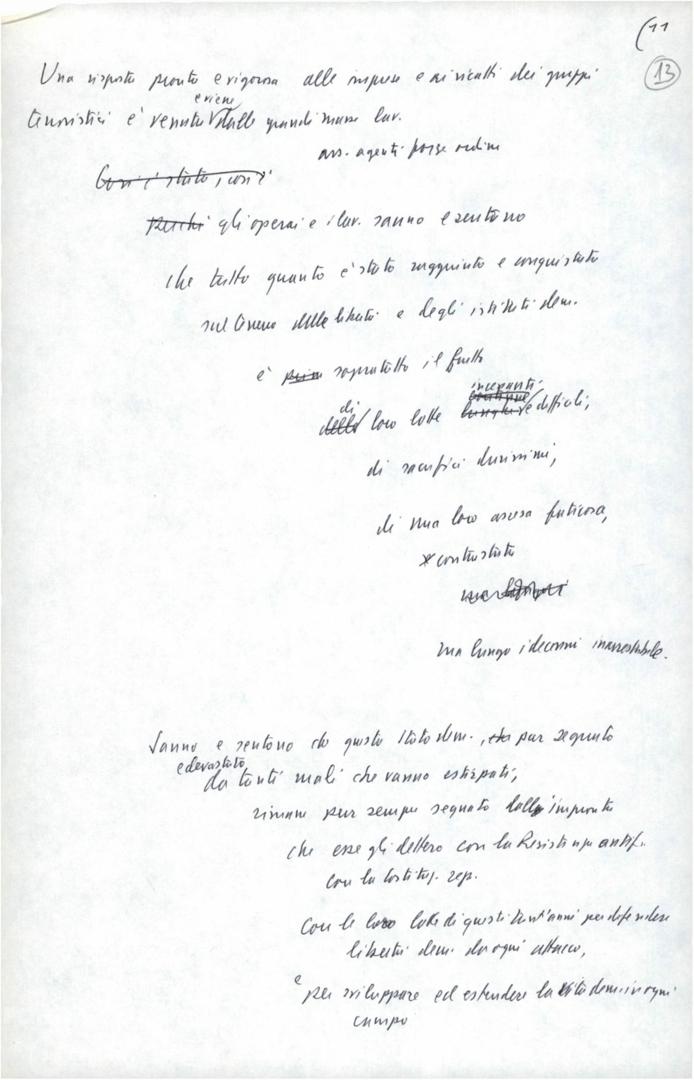 (11
13
Una risposta pronta e rigorosa alle imprese e ai ricatti dei gruppi
e viene
terroristici è venuta dalle grandi masse lav.
ass. agenti forze ordine
Così è stato, così è
Perché gli operai e i lav. sanno e sentono
che tutto quanto è stato raggiunto e conquistato
sul terreno delle libertà e degli istituti dem.
è soprattutto il frutto
incessanti
di
delle loro lotte lunghe e difficili,
di sacrifici durissimi,
di una loro ascesa faticosa,
contrastata
ma lungo i decenni inarrestabile.
Sanno e sentono che questo Stato dem., pur segnato
e devastato
da tanti mali che vanno estirpati,
rimane pur sempre segnato dall'impronta
che esse gli dettero con la Resistenza antif.
con la Costituz. rep.
con le loro lotte di questi trent'anni per difendere
libertà dem. da ogni attacco,
e
per sviluppare ed estendere la vita dem. in ogni
campo